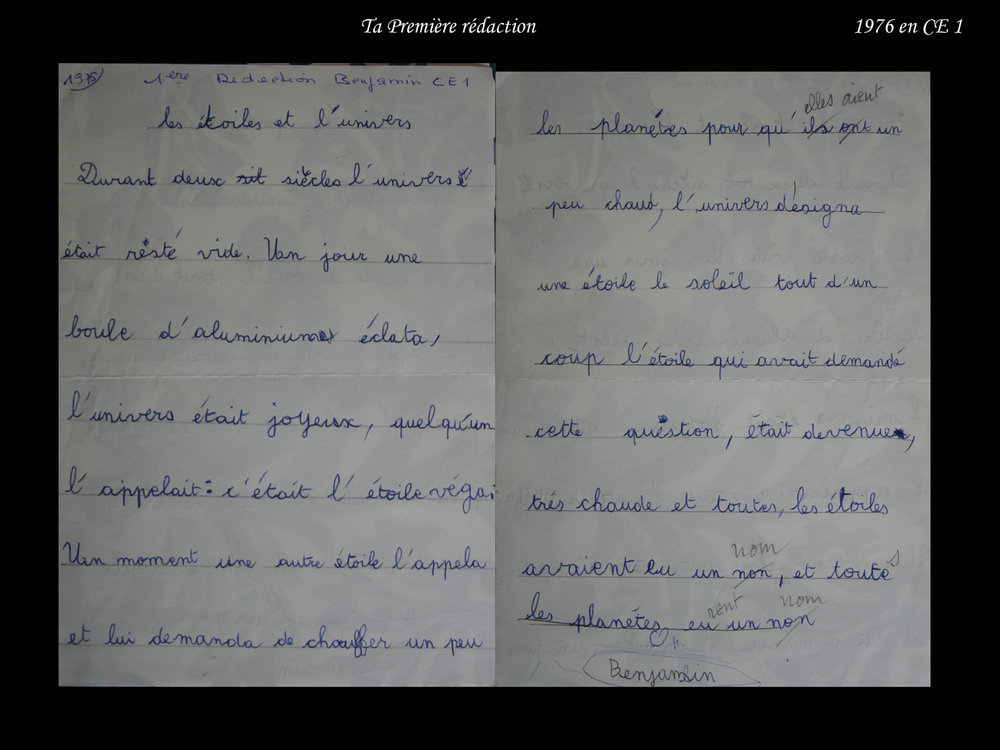 Ta Première rédaction
1976 en CE 1
1976 1ere Rédaction Benjamin CE1
les étoiles et l'univers
Durant deux siècles l'univers
était resté vide. Un jour une
boule d'aluminium éclata,
l'univers était joyeux, quelqu'un
l'appelait: c'était l'étoile véga.
Un moment une autre étoile l'appela
et lui demanda de chauffer un peu
elles aient
les planétes pour qu'ils ont un
peu chaud, l'univers désigna
une étoile le soleil tout d'un
coup l'étoile qui avait demandé
cette quéstion, était devenue,
trés chaude et toutes, les étoiles
nom
avaient eu un non, et toutes
rent nom
les planétes eu un non
Benjamin